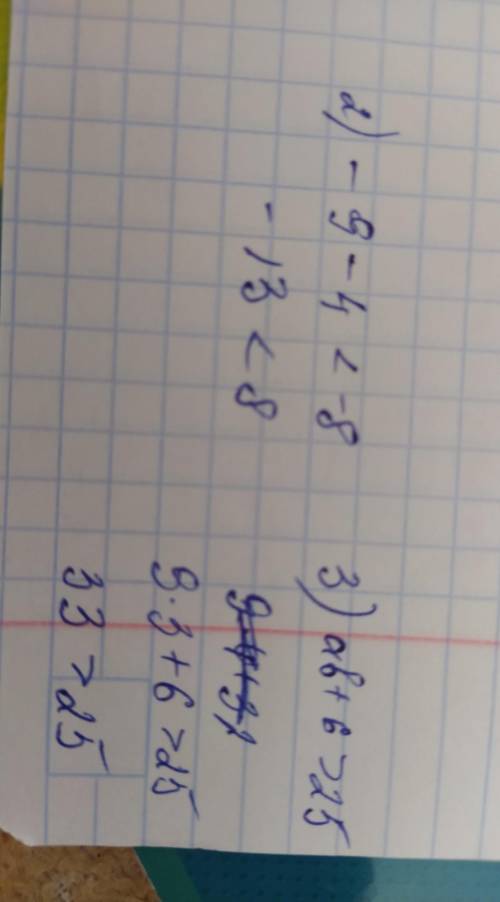 2) - 9 - 4 < -8
- 13 < -8
3) ab + 6 > 25
9·3 + 6 > 25
33 > 25